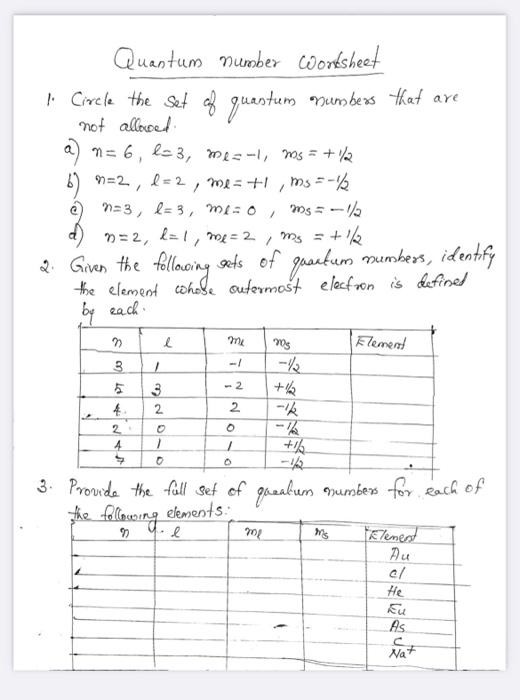 Quantum number worksheet
1. Circle the set of quantum numbers that are
not allowed.
a) n=6, l=3, ml=-1, ms=+1/2
b) n=2, l=2, ml=+1, ms=-1/2
c) n=3, l=3, ml=0, ms=-1/2
d) n=2, l=1, ml=2, ms=+1/2
2. Given the following sets of quantum numbers, identify
the element whose outermost electron is defined
by each.
n l ml ms Element
3 1 -1 -1/2
5 3 -2 +1/2
4 2 2 -1/2
2 0 0 -1/2
4 1 1 +1/2
7 0 0 -1/2
3. Provide the full set of quantum numbers for each of
the following elements:
n l ml ms Element
Au
Cl
He
Eu
As
C
Na+